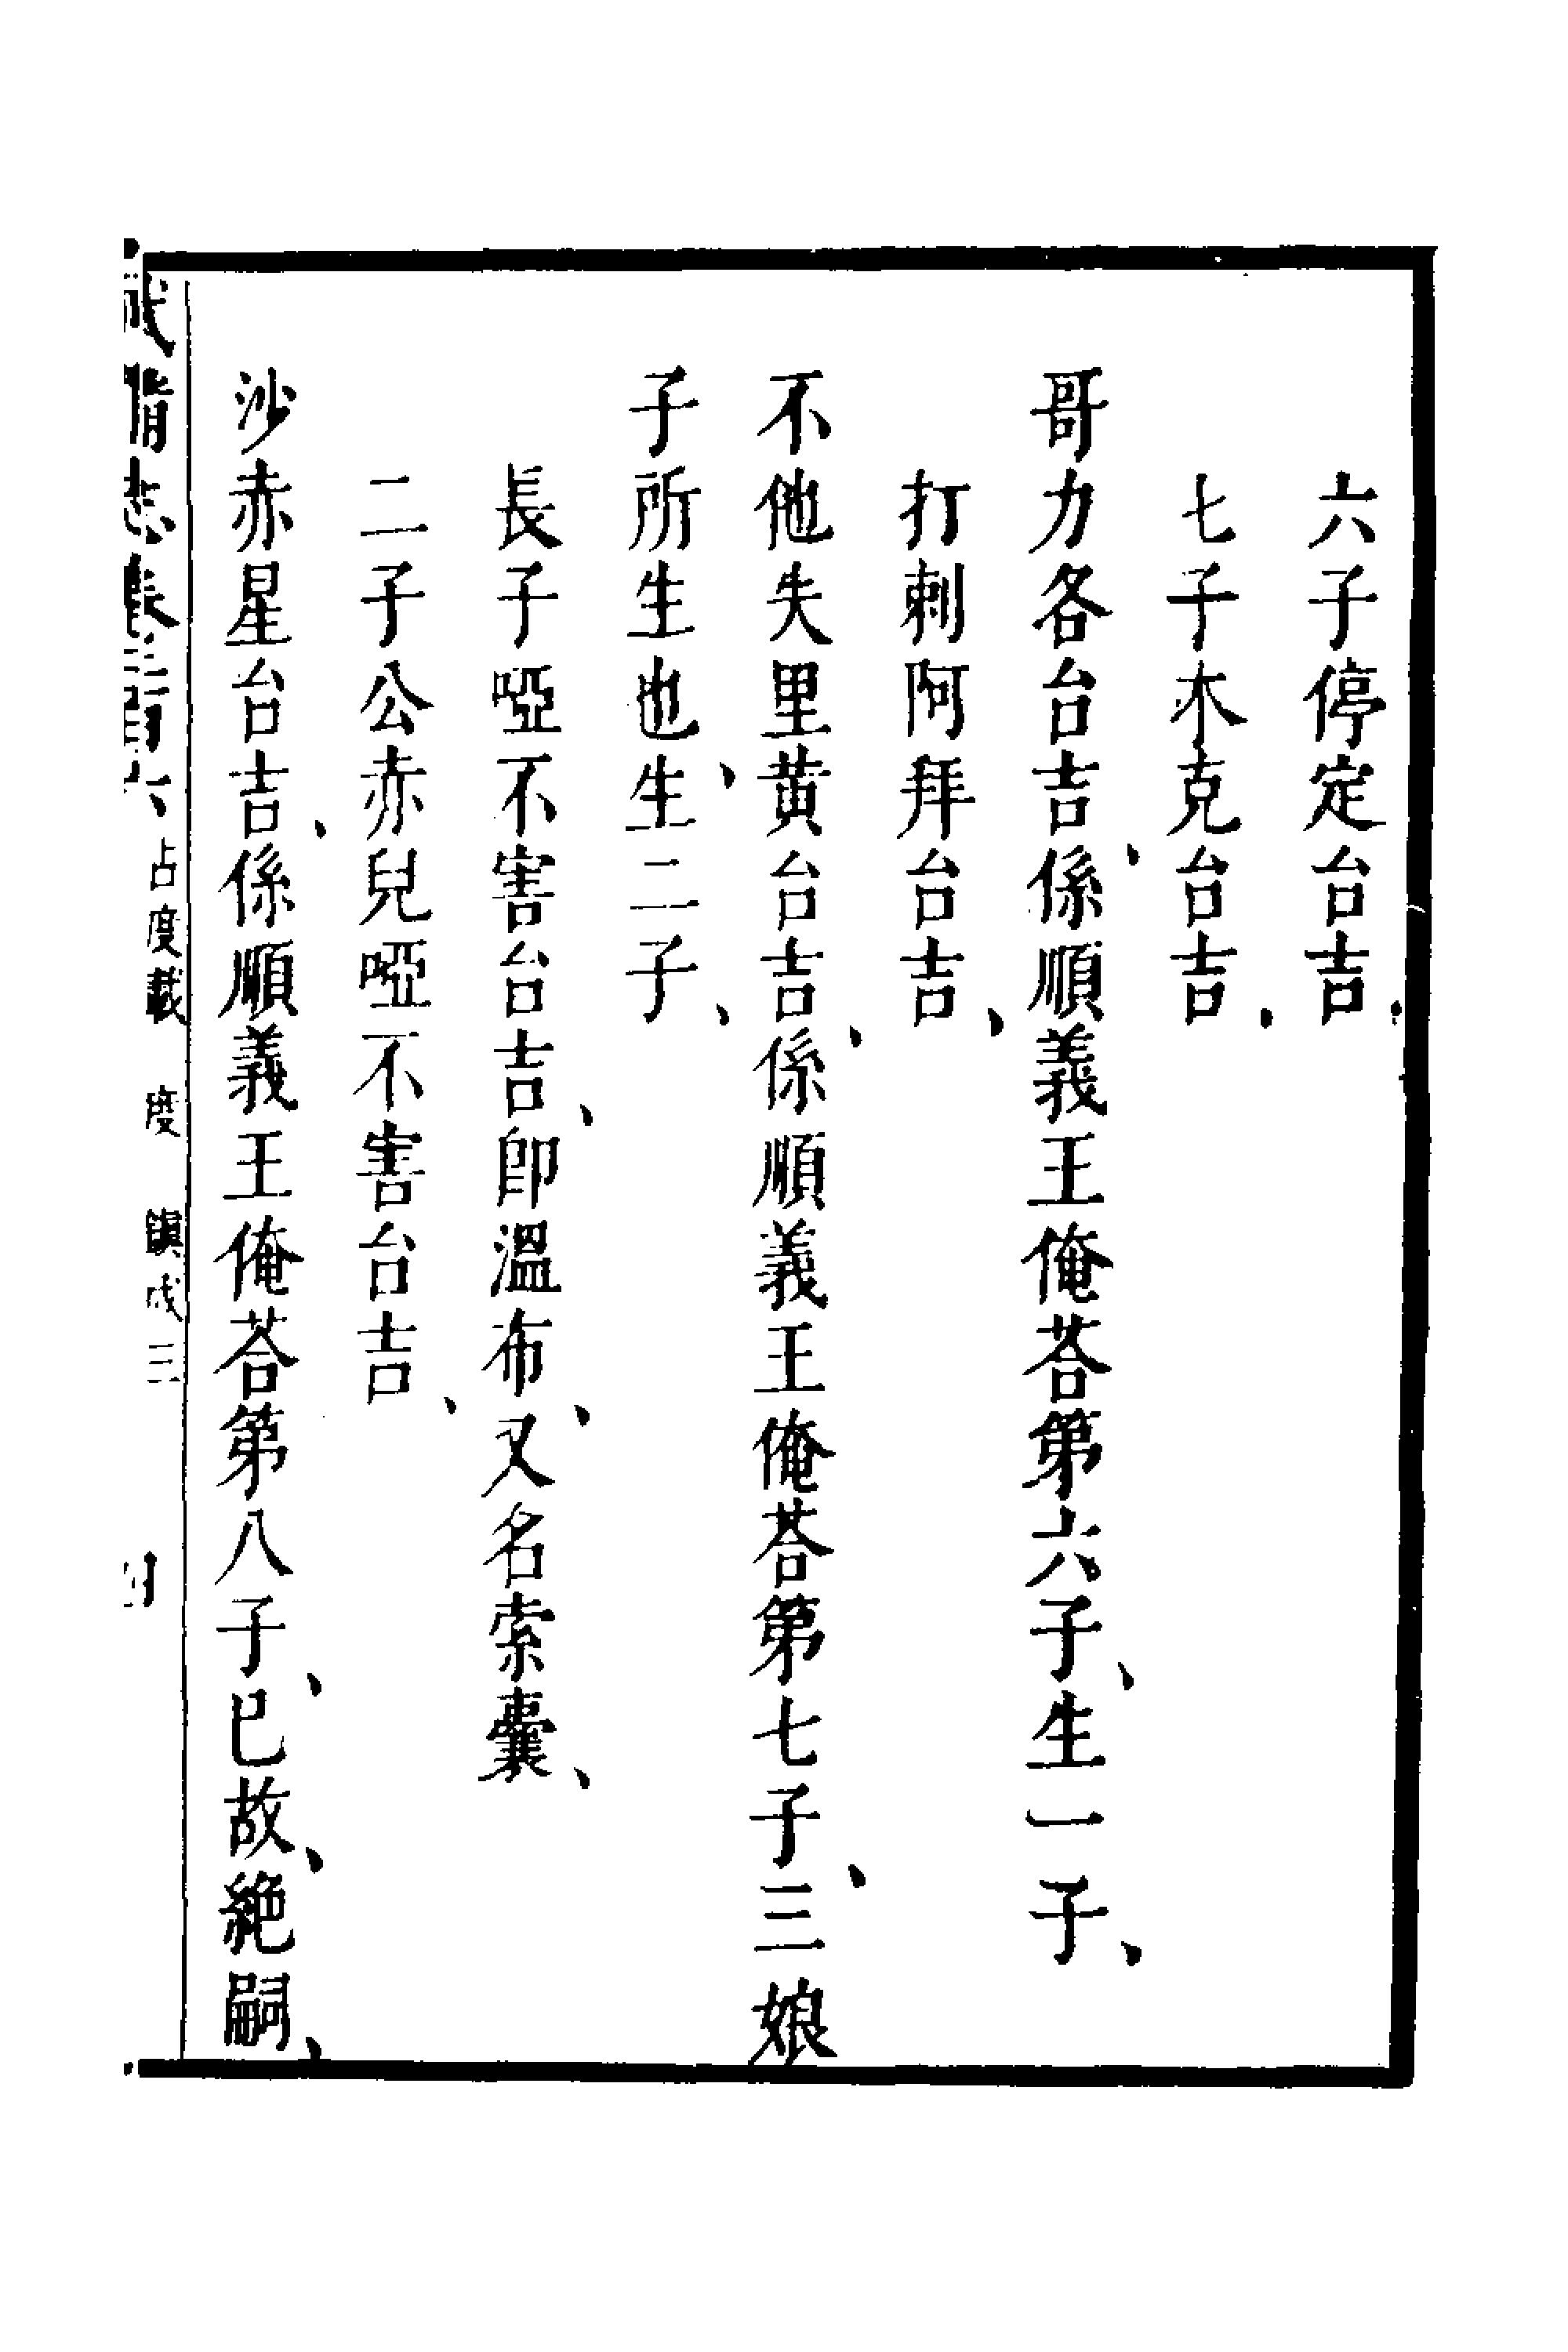 六子停定台吉、
七子木克台吉、
哥力各台吉、係順義王俺荅第六子、生一子、
打剌阿拜台吉、
不他失里黄台吉、係順義王俺荅第七子、三娘
子所生也、生二子、
長子啞不害台吉、即溫布、又名索囊、
二子公赤兒啞不害台吉、
沙赤星台吉、係順義王俺荅第八子、已故、絶嗣、
武備志卷二百六 占度載 度 鎮戍三 四